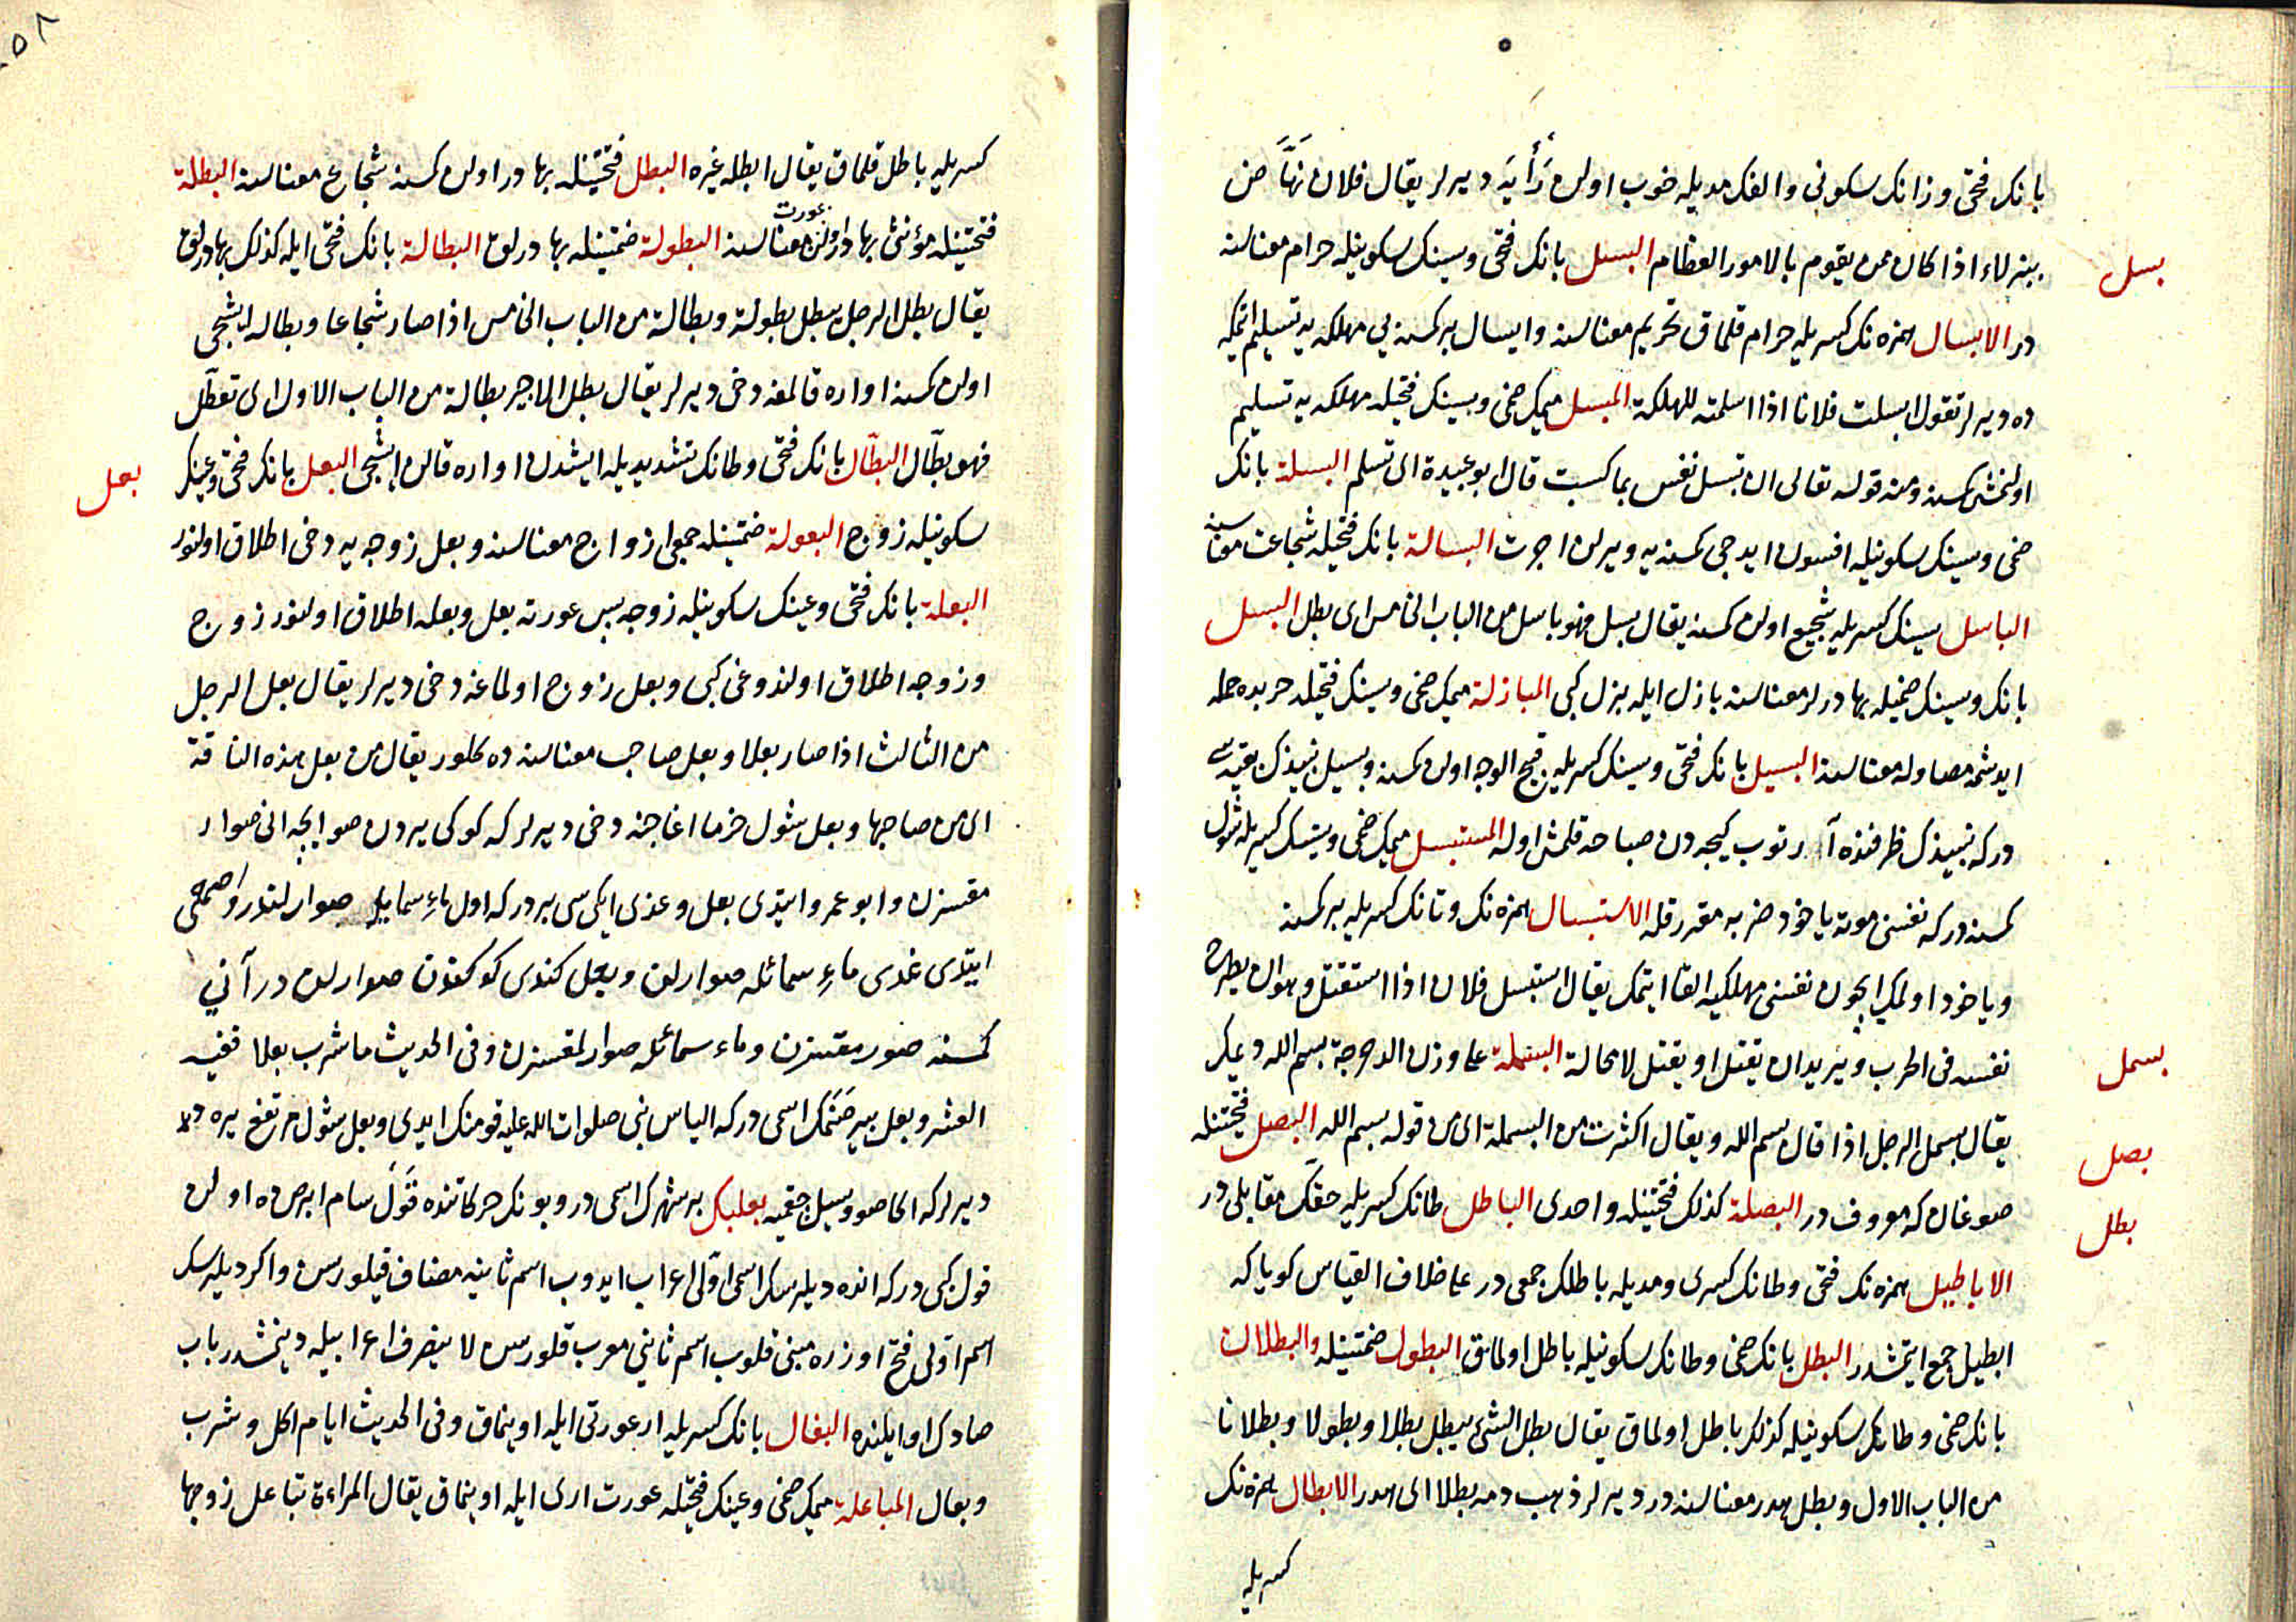 بانك فتحى وزانك سكونى والفك مديله خوب اولن رأيه ديرلر يقال فلان نهاض
ببزلاء اذا كان ممن يقوم بالامور العظام البسل بانك فتحى وسينك سكونيله حرام معناسنه
بسل
در الابسال همزه نك كسريله حرام قلمق تحريم معناسنه وابسال بر كمسنه يى مهلكه يه تسليم اتمكه
ده ديرلر تقول ابسلت فلانا اذا اسلمته للهلكة المبسل ميمك ضمى وسينك فتحيله مهلكه يه تسليم
اولنمش كمسنه ومنه قوله تعالى ان تبسل نفس بما كسبت قال ابو عبيدة اى تسلم البسلة بانك
ضمى وسينك سكونيله افسون ايدجى كمسنه يه ويرلن اجرت البسالة بانك فتحيله شجاعت معناسنه
الباسل سينك كسريله شجيع اولن كمسنه يقال بسل فهو باسل من الباب الخامس اى بطل البسل
بانك وسينك ضميله بهادرلر معناسنه بازل ايله بزل كبى المبازلة ميمك ضمى وسينك فتحيله حربده حمله
ايدشمه مصاوله معناسنه البسيل بانك فتحى وسينك كسريله قبيح الوجه اولن كمسنه وبسيل نبيذك بقيه سى
دركه نبيذك ظرفنده آرتوب كيجه دن صباحه قلمش اوله المستبسل ميمك ضمى وسينك كسريله شول
كمسنه دركه نفسنى موته ياخود ضربه مقرر قله الاستبسال همزه نك وتانك كسريله بر كمسنه
وياخود اولمك ايچون نفسنى مهلكيه القا ايتمك يقال استبسل فلان اذا استقتل وهو ان يطرح
نفسه فى الحرب ويريد ان يقتل او يقتل لا محالة البسملة على وزن الدحرجة بسم الله ديمكر
بسمل
يقال بسمل الرجل اذا قال بسم الله ويقال اكثرت من البسملة اى من قوله بسم الله البصل فتحتينله
بصل
صوغان كه معروف در البصلة كذلك فتحتينله واحدى الباطل طانك كسريله حقك مقابلى در
بطل
الاباطيل همزه نك فتحى وطانك كسرى ومديله باطلك جمعى در على خلاف القياس كويا كه
ابطيل جمع ايتمشدر البطل بانك ضمى وطانك سكونيله باطل اولمق البطول ضمتينله والبطلان
بانك ضمى وطانك سكونيله كذلك باطل اولماق يقال بطل الشئ يبطل بطلا وبطولا وبطلانا
من الباب الاول وبطل هدر معناسنه در ديرلر ذهب دمه بطلا اى هدر الابطال همزه نك
كسريله
كسريله باطل قلماق يقال ابطله غيره البطل فتحتينله بهادر اولن كمسنه شجاع معناسنه البطلة
فتحتينله مؤنثى بهادر اولن عورت معناسنه البطولة ضمتينله بهادرلق البطالة بانك فتحى ايله كذلك بهادرلق
يقال بطل الرجل يبطل بطولة وبطالة من الباب الخامس اذا صار شجاعا وبطاله ايشجى
اولن كمسنه اواره قالمغه دخى ديرلر يقال بطل الاجير بطالة من الباب الاول اى تعطل
فهو بطال البطّال بانك فتحى وطانك تشديديله ايشدن اواره قالن ايشجى البعل بانك فتحى وعينك
بعل
سكونيله زوج البعولة ضمتينله جمعى ازواج معناسنه وبعل زوجه يه دخى اطلاق اولنور
البعلة بانك فتحى وعينك سكونيله زوجه پس عورته بعل وبعله اطلاق اولنور زوج
وزوجه اطلاق اولندوغى كبى وبعل زوج اولماغه دخى ديرلر يقال بعل الرجل
من الثالث اذا صار بعلا وبعل صاحب معناسنه ده كلور يقال من بعل هذه الناقة
اى من صاحبها وبعل شول خرما اغاجنه دخى ديرلر كه كوكى يردن صو ايچه انى صوار
مقسزن وابو عمرو ايتدى بعل وعذى ايكيسى بردركه اول ماء سمايله صوارلنور واصمعى
ايتدى عذى ماء سمائله صوارلن وبعل كندى كوكندن صوارلن در آنى
كمسنه صورمقسزن وماء سمائله صوارلمقسزن وفى الحديث ما شرب بعلا ففيه
العشر وبعل بر صنمك اسمى دركه الياس نبى صلوات الله عليه قومنك ايدى وبعل شول مرتفع يره ده
ديرلر كه اكا صو وسيل چقميه بعلبك بر شهرك اسمى در وبونك حركاتنده قول سام ابرص ده اولن
قول كبى دركه انده ديلرسك اسم اولى اعراب ايدوب اسم ثانيه مضاف قيلورسن واكر ديلرسك
اسم اولى فتح اوزره مبنى قلوب اسم ثانى معرب قلورسن لا ينصرف اعرابيله ديمشدر باب
صادك اوايلنده البعال بانك كسريله ار عورتى ايله اوينماق وفى الحديث ايام اكل وشرب
وبعال المباعلة ميمك ضمى وعينك فتحيله عورت ارى ايله اوينماق يقال المراءة تباعل زوجها